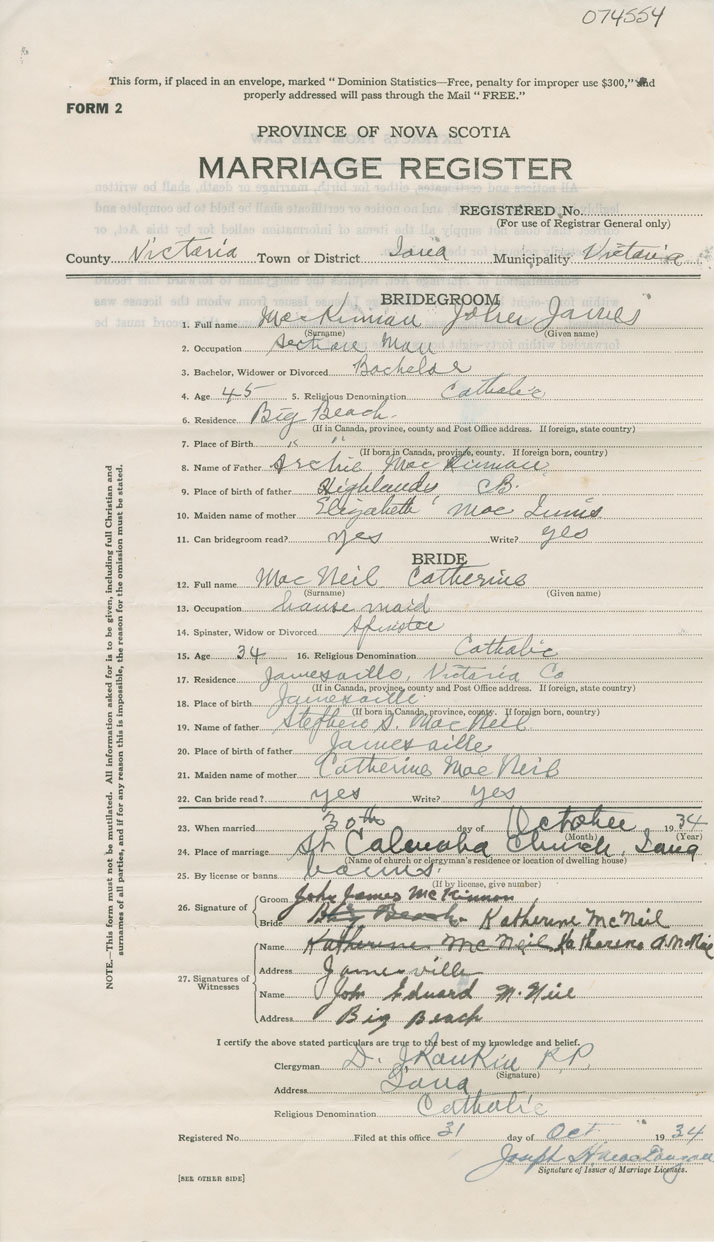 074554
This form, if placed in an envelope, marked "Dominion Statistics—Free, penalty for improper use $300," and
properly addressed will pass through the Mail "FREE."
FORM 2
PROVINCE OF NOVA SCOTIA
MARRIAGE REGISTER
REGISTERED No.
(For use of Registrar General only)
County Victoria Town or District Iona Municipality Victoria
BRIDEGROOM
1. Full name MacKinnon John James
(Surname) (Given name)
2. Occupation Section Man
3. Bachelor, Widower or Divorced Bachelor
4. Age 45 5. Religious Denomination Catholic
6. Residence Big Beach.
(If in Canada, province, county and Post Office address. If foreign, state country)
7. Place of Birth " "
(If born in Canada, province, county. If foreign born, country)
8. Name of Father Archie MacKinnon
9. Place of birth of father Highlands CB.
10. Maiden name of mother Elizabeth MacInnis
11. Can bridegroom read? yes Write? yes
BRIDE
12. Full name MacNeil Catherine
(Surname) (Given name)
13. Occupation house maid
14. Spinster, Widow or Divorced Spinster
15. Age 34 16. Religious Denomination Catholic
17. Residence Jamesville, Victoria Co
(If in Canada, province, county and Post Office address. If foreign, state country)
18. Place of birth Jamesville
(If born in Canada, province, county. If foreign born, country)
19. Name of father Stephen S. MacNeil
20. Place of birth of father Jamesville
21. Maiden name of mother Catherine MacNeil
22. Can bride read? yes Write? yes
23. When married 30th day of October 1934
(Month) (Year)
24. Place of marriage St Columba Church, Iona
(Name of church or clergyman's residence or location of dwelling house)
25. By license or banns banns.
(If by license, give number)
26. Signature of Groom John James McKinnon
Bride Big Beach Katherine McNeil
27. Signatures of Witnesses
Name Katherine McNeil Katherine A. McNeil
Address Jamesville
Name John Eduard McNeil
Address Big Beach
I certify the above stated particulars are true to the best of my knowledge and belief.
Clergyman D. J Rankin P.P.
(Signature)
Address Iona
Religious Denomination Catholic
Registered No. Filed at this office 31 day of Oct 1934
Joseph
Signature of Issuer of Marriage Licenses.
[SEE OTHER SIDE]
NOTE.—This form must not be mutilated. All information asked for is to be given, including full Christian and
surnames of all parties, and if for any reason this is impossible, the reason for the omission must be stated.